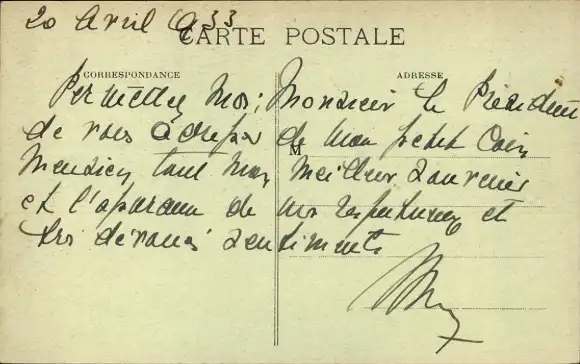 20 Avril 1933
CARTE POSTALE
CORRESPONDANCE
ADRESSE
Permettez Moi, Monsieur le Président
de vous adresser de mon petit Coin
M
tout mon Meilleur Souvenir
et l'assurance de mes respectueux et
très dévoués sentiments